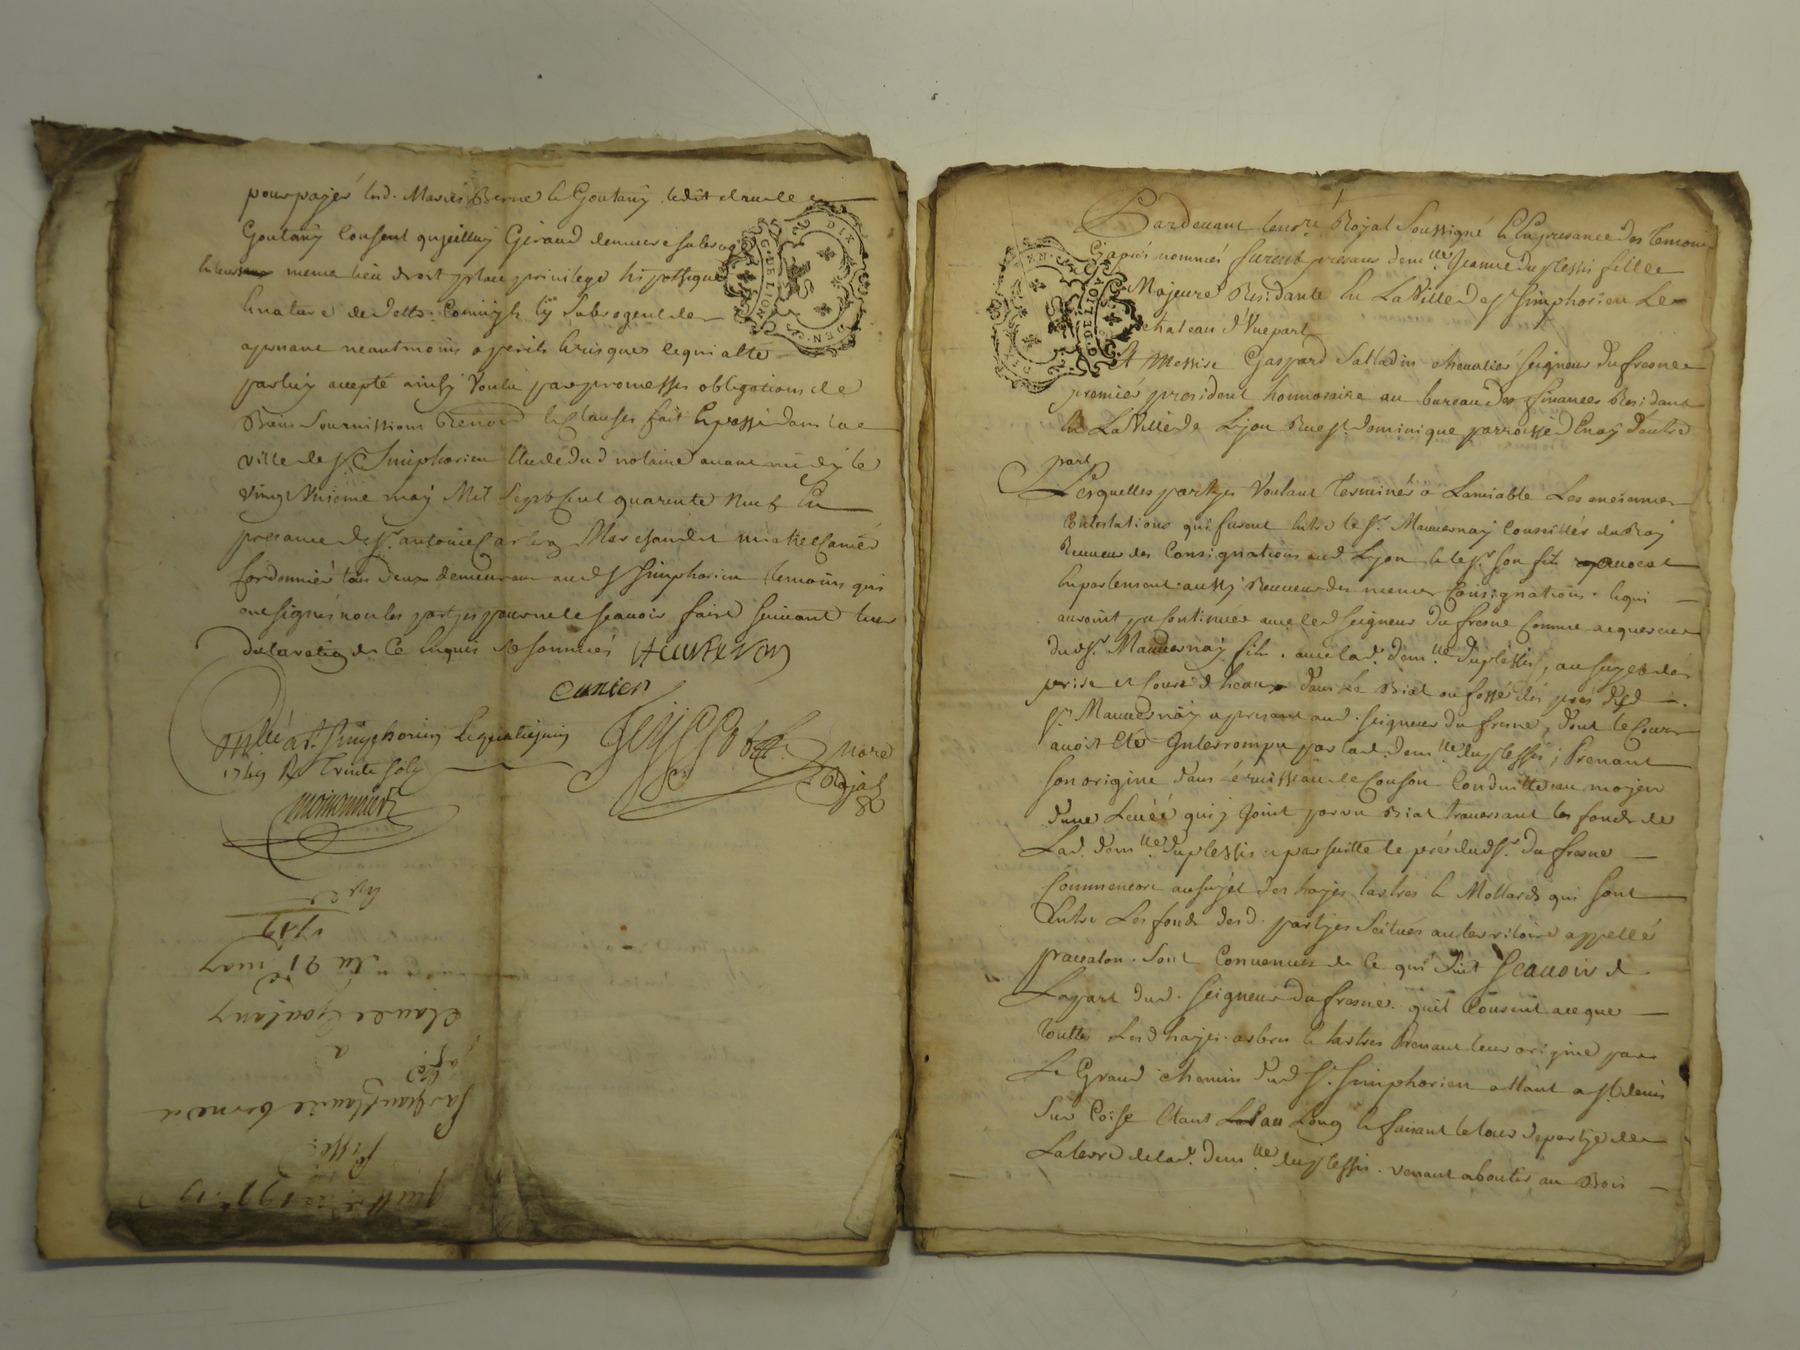 pour payer lesd. Mariés Berne et Goutany ledit Claude
Goutany consent qu'jcelluy Geraud demeure subrogé
meme lieu droit place privilege hipotheque
et nature de
aprenant neantmoins a perils et risques ce qui a été
par luy accepté ainsy voulu par promesses obligations de
Biens Soumissions Renon et clauses fait et passé dans la
ville de St Simphorien Etude dud notaire avant midy le
vingt unieme may Mil Sept Cent quarante neuf En
presance de Sr antoine Marchand et michel Canier
Cordonnier tous deux demeurant aud St Simphorien temoins qui
ont signé non les partyes pour ne le sçavoir faire suivant leur
declaration de ce enquis et sommées
canier
à St Simphorien le quatre juin
1749 Ra trente sols
nore
Royal
GDE LION
DIX DEN
Par devant le nore Royal Soussigné et En presance des temoins
Cy après nommés furent presans demlle Jeanne Duplessis fille
Majeure Residante En La Ville de St Simphorien Le
chateau d'Une part
Et Messire Gaspard Salladin chevalier seigneur du fresne
premier president honnoraire au bureau des finances Residant
En La Ville de Lyon Rue St dominique parroisse d'Enay d'autre
part
Lesquelles partyes voulant terminer a L'amiable Les anciennes
Contestations qui furent entre le Sr. Mauvernay Conseiller du Roy
Receveur des Consignations aud Lyon et le Sr. son fils avocat
En parlement aussy Receveur des memes Consignations. et qui
auroint pu continuer avec led seigneur du fresne comme acquereur
dud Sr. Mauvernay fils. avec lad. demlle Duplessis, au sujet de
prise et Cours d'heaux dans Le Bial ou fossé des prés dud
Sr. Mauvernay a presant aud. seigneur du fresne, dont le Cours
avoit eté Interrompu par lad. demlle duplessis; Prenant
son origine dans le ruisseau de Couson Conduitte au moyen
d'une Levée qui y joint par un Bial traversant les fonds de
Lad. demlle duplessis a par suitte le pré dud Sr. du fresne
Comme encore au sujet des hayes tartres et Mollards qui sont
Entre Les fonds desd. partyes Scitués au territoire appellé
pravalon. sont Convenues de ce qui suit Scavoir de
La part dud. seigneur Du fresne. qu'il Consent a ce que
touttes Lesd hayes. arbres et tartres Prenant leur origine par
Le Grand chemin dud St. Simphorien allant a St denis
Sur Coise Etant au Long et faisant le tour de partye de
La terre de lad. demlle duplessis. venant aboutir au Bois
GDE LION
du 21 may
1749
Claude Goutany
a